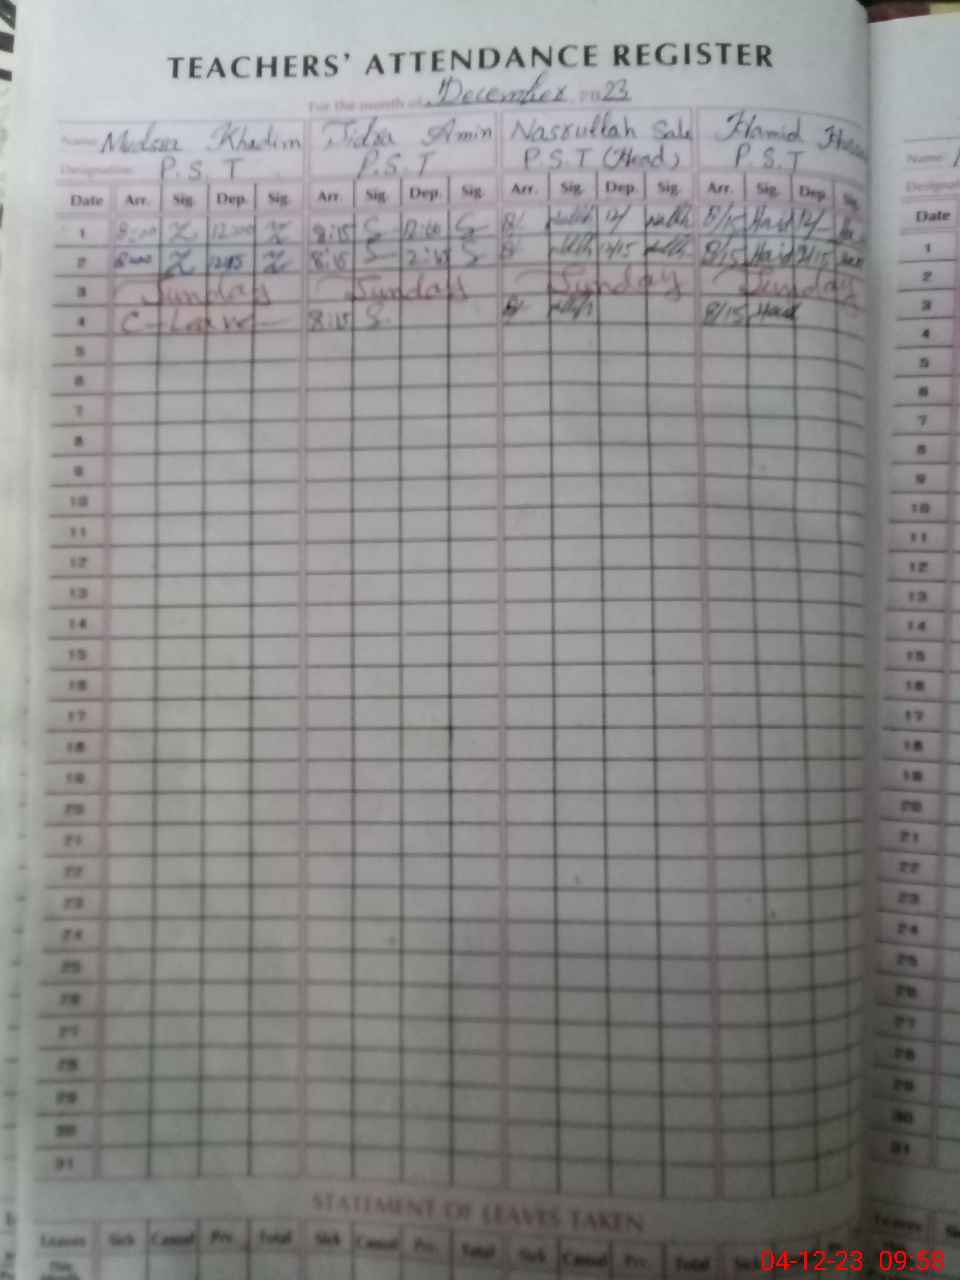 TEACHERS' ATTENDANCE REGISTER
For the month of December 2023
Name Khadim Sidra Amin Nasrullah Hamid
Designation P.S.T P.S.T P.S.T (Head) P.S.T
Date Arr. Sig. Dep. Sig. Arr. Sig. Dep. Sig. Arr. Sig. Dep. Sig. Arr. Sig. Dep. Sig.
1 8:00 12:00 8:15 12:00 8/ 12/ 8/15 12/
2 8:00 12:15 8:15 8/ 12/15 8/15
3 Sunday Sunday Sunday Sunday
4 C-Leave 8:15 S. 8/ 8/15
5
6
7
8
9
10
11
12
13
14
15
16
17
18
19
20
21
22
23
24
25
26
27
28
29
30
31
STATEMENT OF LEAVES TAKEN
Leaves Sick Casual Prv. Total Sick Casual Prv. Total Sick Casual Prv. Total Sick
Name
Date
1
2
3
4
5
6
7
8
9
10
11
12
13
14
15
16
17
18
19
20
21
22
23
24
25
26
27
28
29
30
31
Leaves
04-12-23 09:58